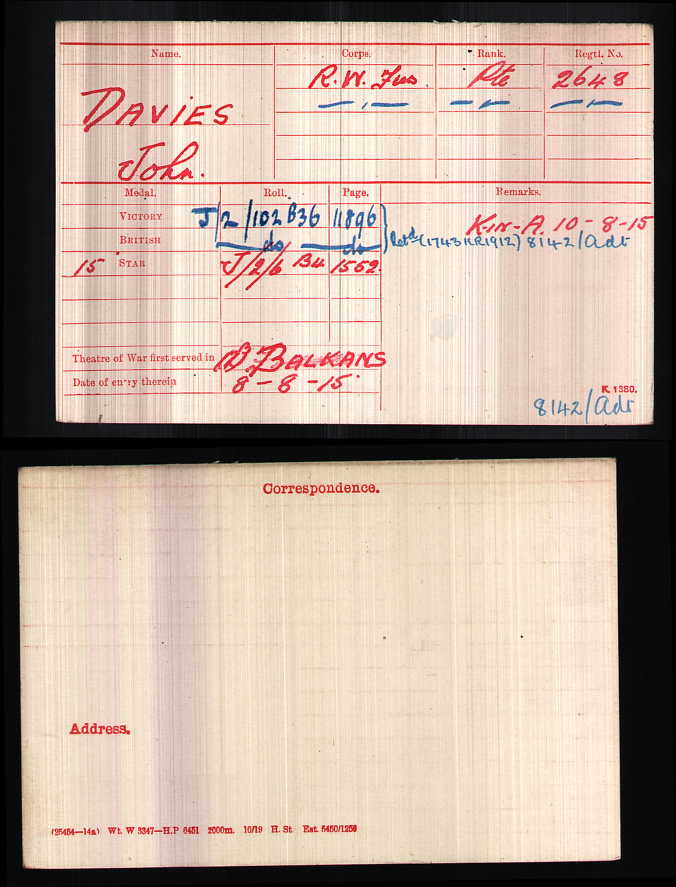 Name. Corps. Rank. Regtl. No.
DAVIES R.W. Fus. Pte 2648
John. — „ — — „ — — „ —
Medal. Roll. Page. Remarks.
VICTORY J/2/102 B36 11896 K-in-A. 10-8-15
BRITISH do do Retd (1743 KR1912) 8142/Adt
15 STAR J/2/6 B4 1552.
Theatre of War first served in BALKANS
Date of entry therein 8-8-15.
K. 1380.
8142/Adt
Correspondence.
Address.
(25454—14a) Wt. W 3347—H.P 6451 2000m. 10/19 H. St Est. 5450/1256